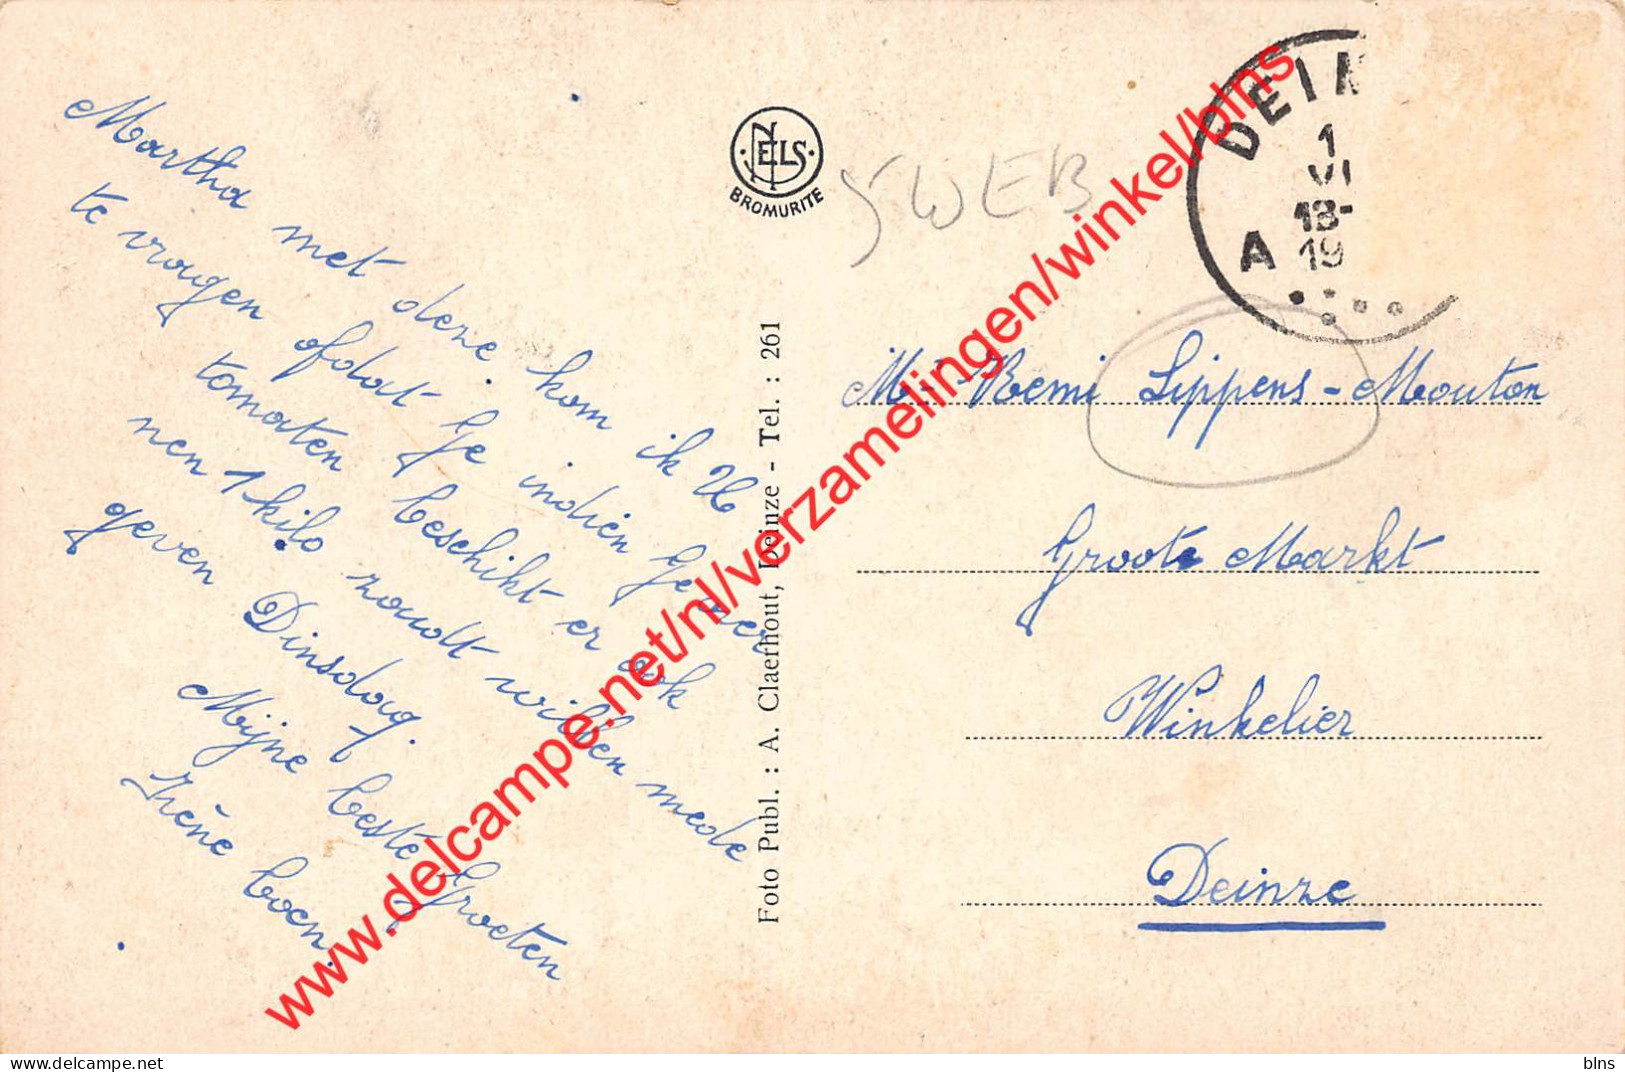 Martha met deze kom ik U
te vragen ofdat Ge indien Ge
tomaten beschikt er ook
nen 1 kilo zoudt willen mede
geven Dinsdag.
Mijne beste Groeten
Irène
NELS
BROMURITE
Foto Publ. : A. Claerhout, Deinze - Tel. : 261
WEB
DEIN
1
VI
13-
A 19
Mr Remi Lippens-Mouton
Groote Markt
Winkelier
Deinze
www.delcampe.net/nl/verzamelingen/winkel/blns
delcampe.net
blns